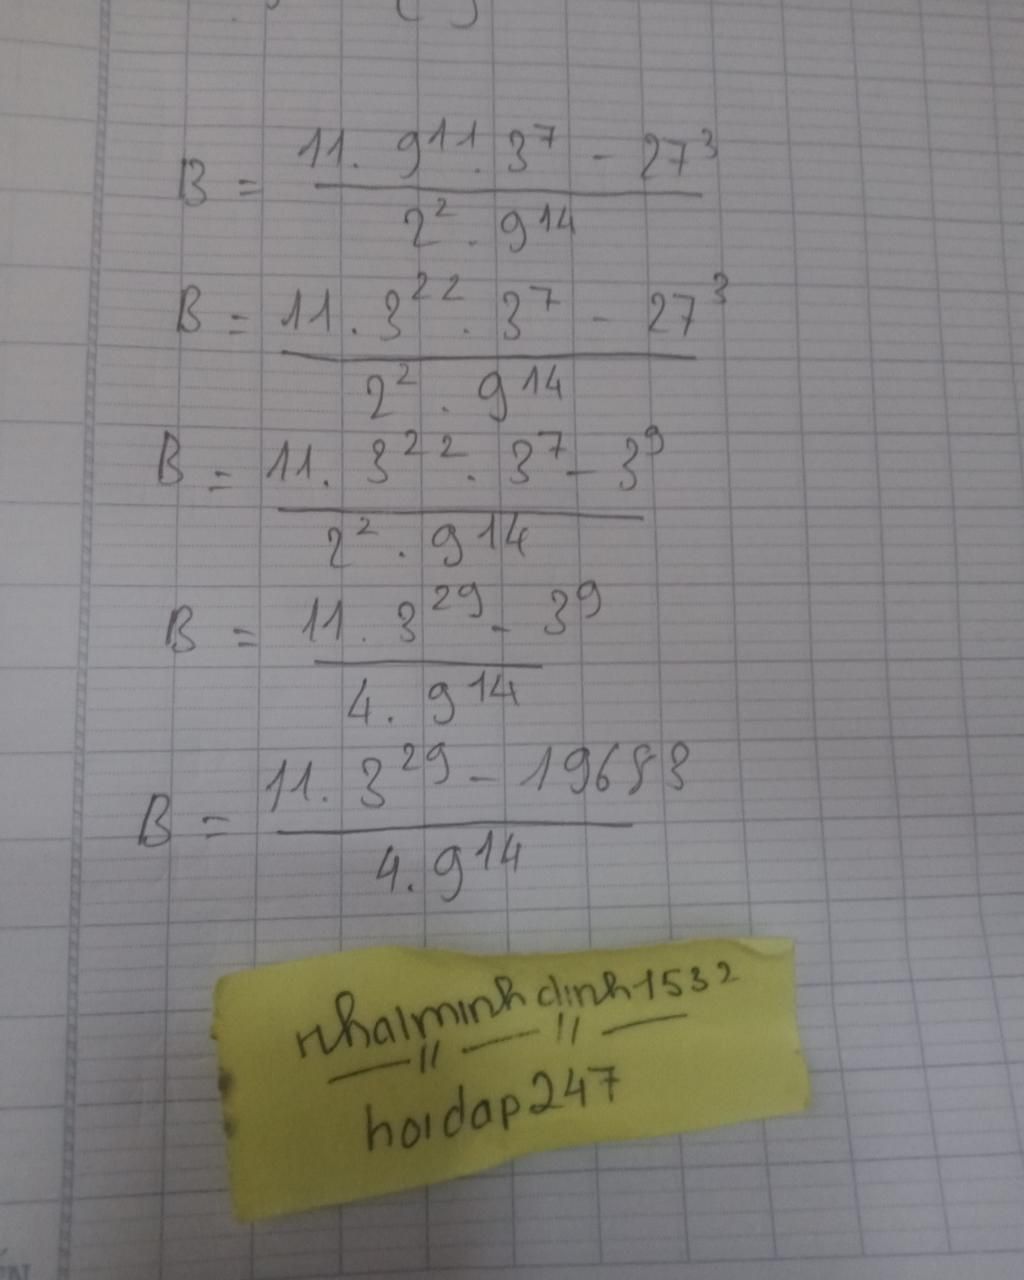 B = 11 . 9¹¹ . 3⁷ - 27³
2² . 9¹⁴
B = 11 . 3²² . 3⁷ - 27³
2² . 9¹⁴
B = 11 . 3²² . 3⁷ - 3⁹
2² . 9¹⁴
B = 11 . 3²⁹ - 3⁹
4 . 9¹⁴
B = 11 . 3²⁹ - 19683
4 . 9¹⁴
nhatminhdinh1532
hoidap247